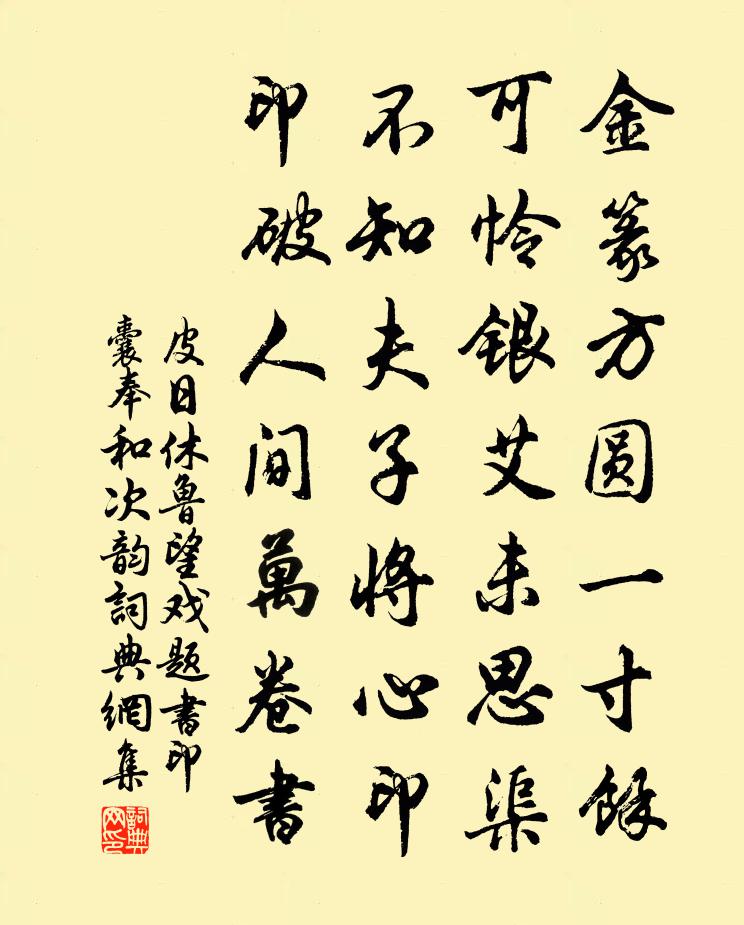 金篆方圆一寸餘
可怜银艾未思渠
不知夫子将心印
印破人间萬卷書
皮日休鲁望戏题書印
囊奉和次韵詞典網集
詞典
网印